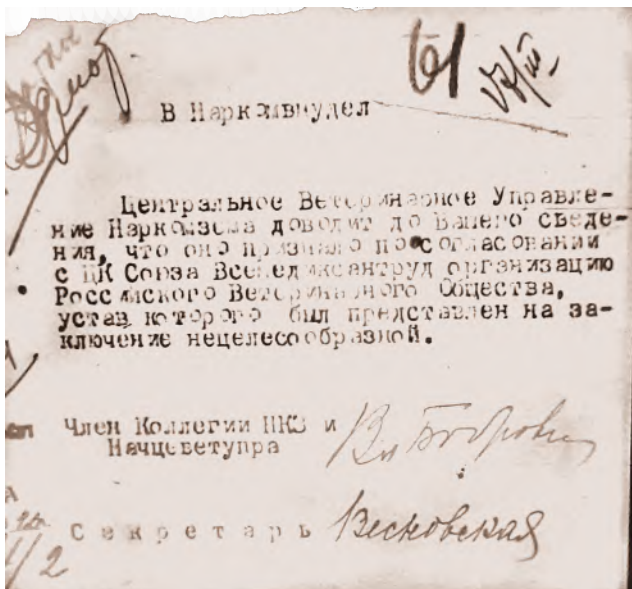 61
В Наркомвнудел
Центральное Ветеринарное Управле-
ние Наркомзема доводит до Вашего сведе-
ния, что оно признало по согласовании
с ЦК Союза Всемедиксантруд организацию
Российского Ветеринарного Общества,
устав которого был представлен на за-
ключение нецелесообразной.
Член Коллегии НКЗ и
Начцеветупра
Секретарь Весковская